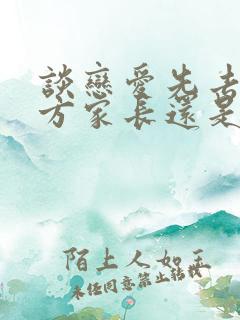 談戀愛先去
方家長還是
陌上人如玉
未任同意禁止轉載